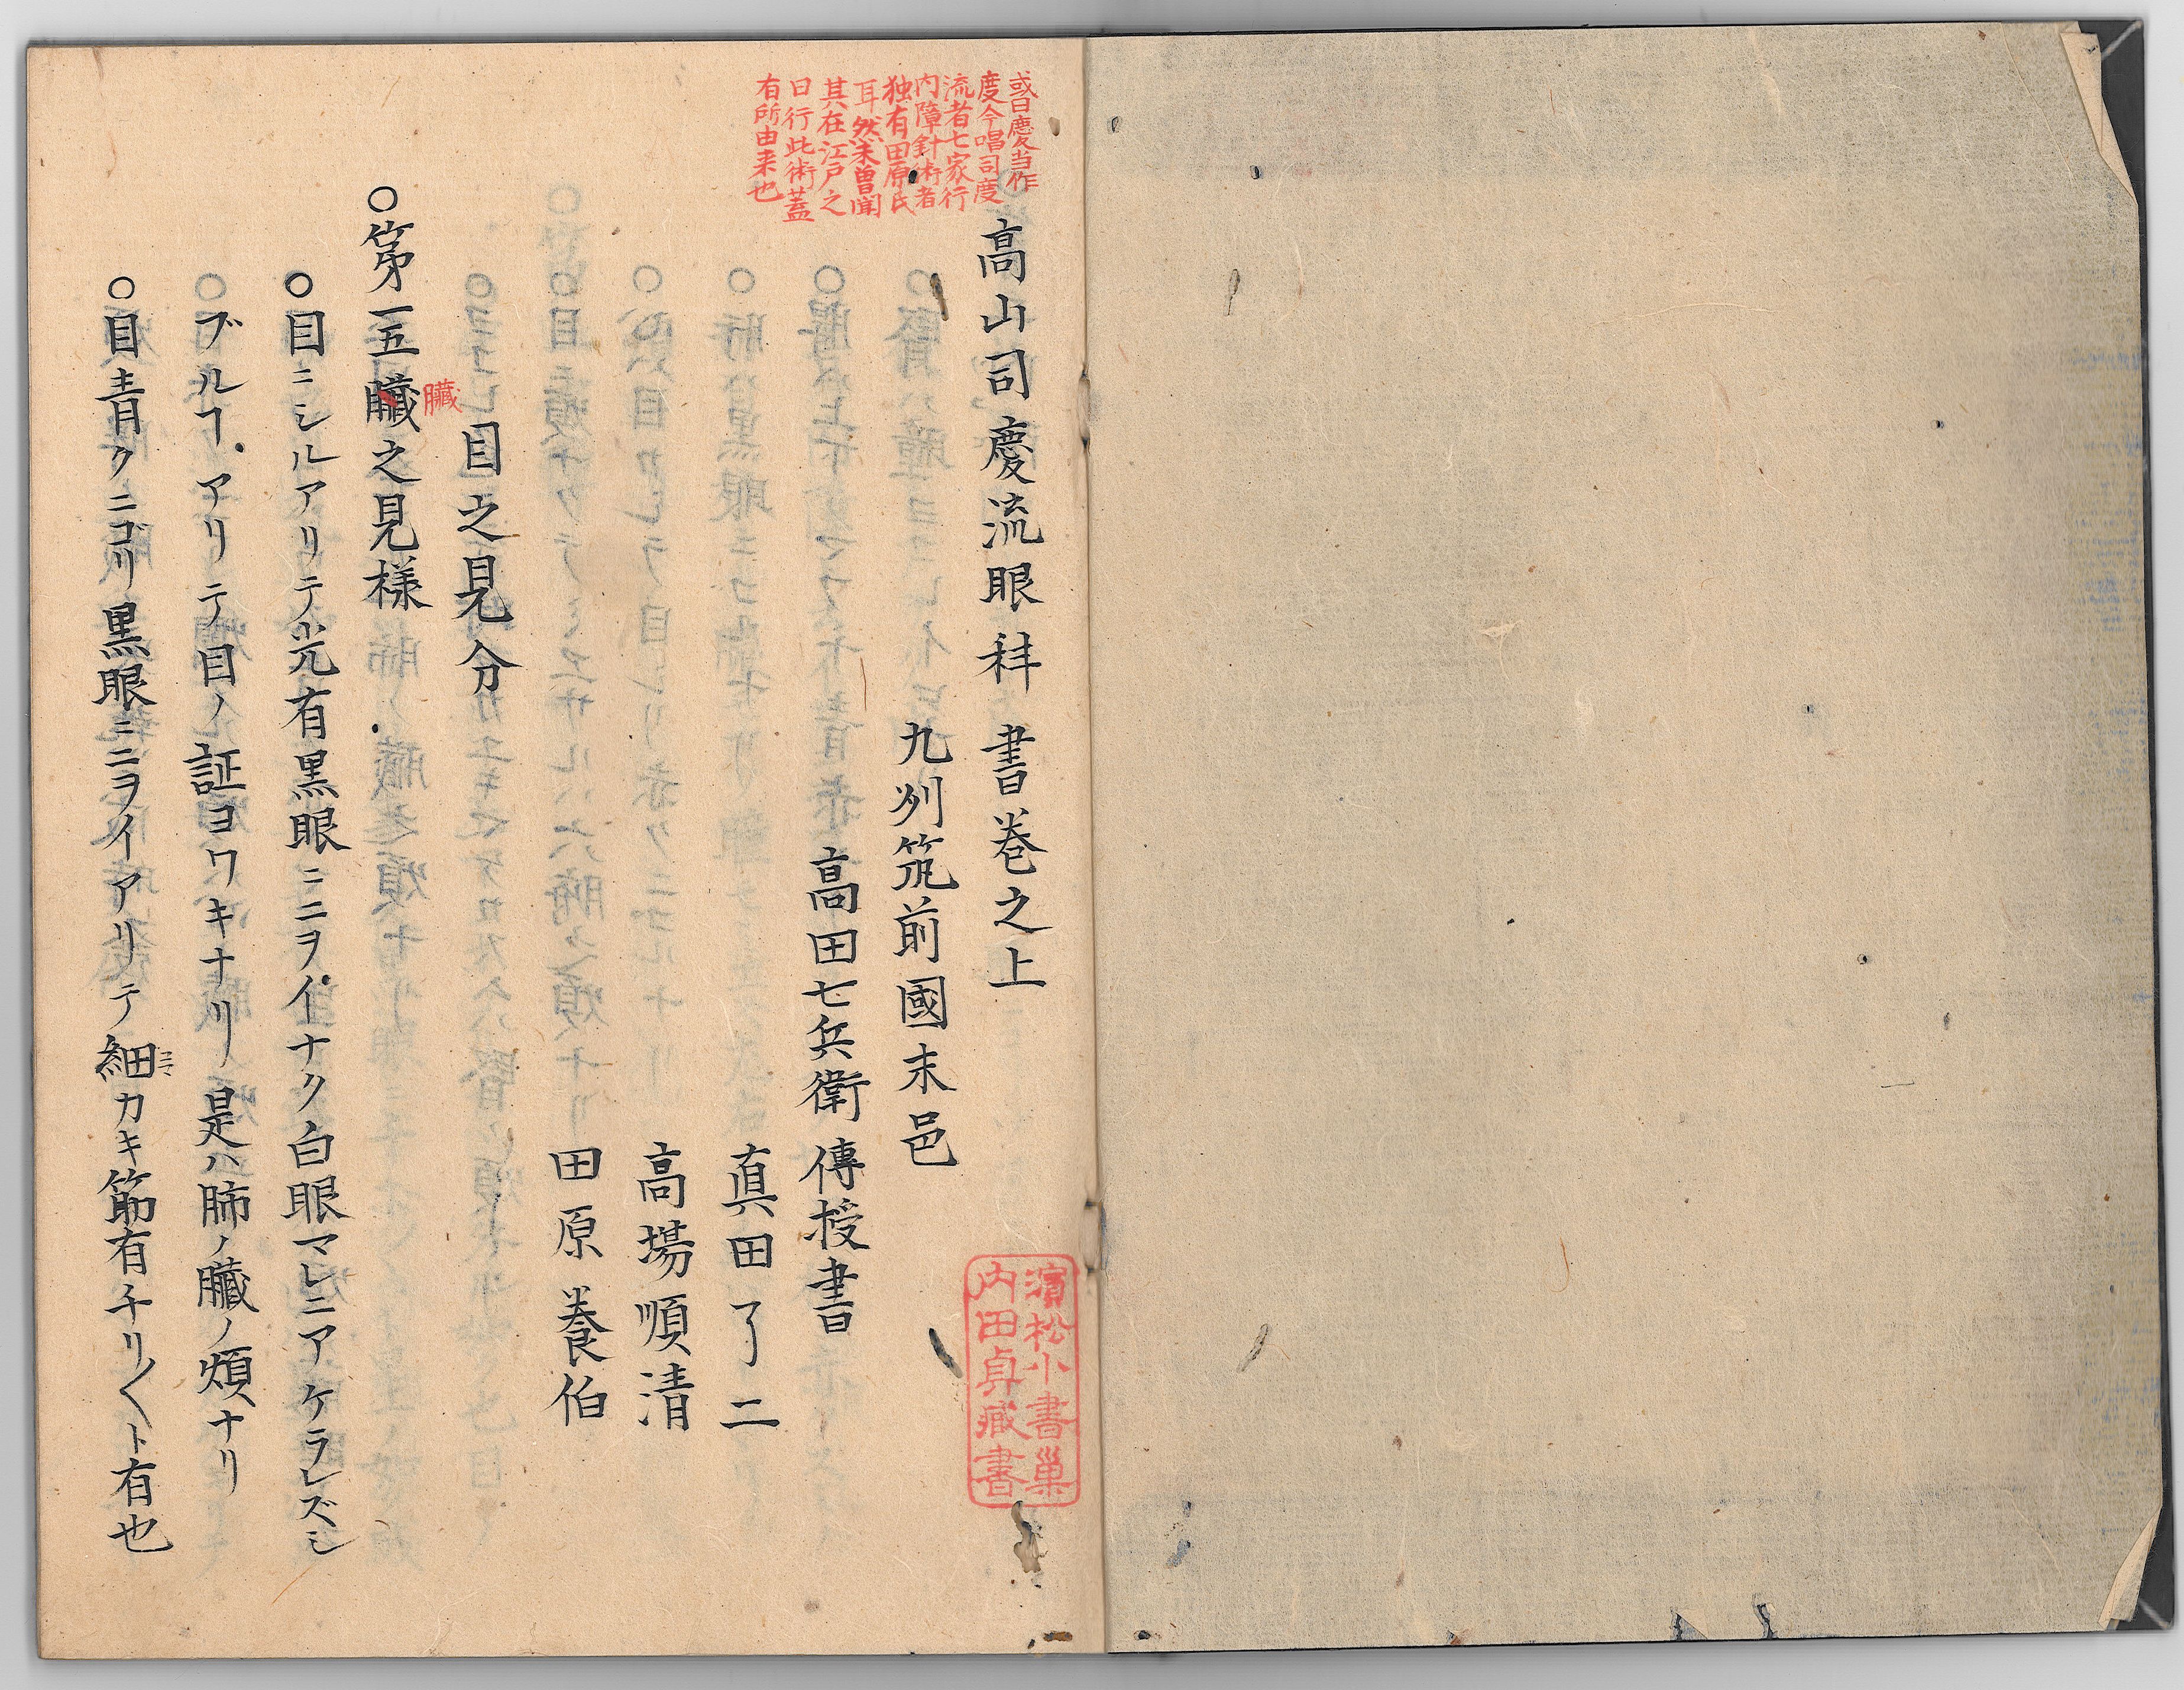 或曰慶当作
度今唱司度
流者七家行
内障針術者
独有田原氏
耳然未曽聞
其在江戸之
日行此術蓋
有所由来也
高山司慶流眼科書巻之上
九州筑前國末邑
高田七兵衛傳授書
真田了二
高場順清
田原養伯
目之見分
○第一五臓之見様
臓
○目ニシルアリテ光有黒眼ニニヲイナク白眼マレニアケラレズシ
ブルヿアリテ目ノ証ヨワキナリ是ハ肺ノ臓ノ煩ナリ
○目青クニゴリ黒眼ニニヲイアリテ細カキ筋有チリ〱ト有也
コマ
濱松小書巣
内田貞蔵書